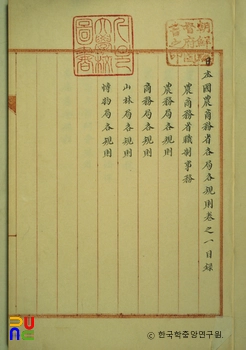 日本國農商務省各局各規則卷之一目錄
農商務省職制事務
農務局各規則
商務局各規則
山林局各規則
博物局各規則
朝鮮總督府圖書之印
© 한국학중앙연구원